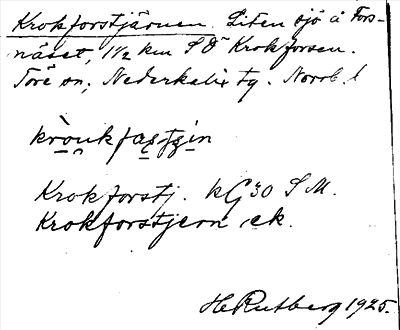 Krokforstjärnen. Liten sjö å Fors-
näset, 1 1/2 km SO Krokforsen.
Töre sn, Nederkalix tg. Norrb. l
kròukfaştşin
Krokforstj. kG30 S M.
Krokforstjern ek.
HRutberg 1925.